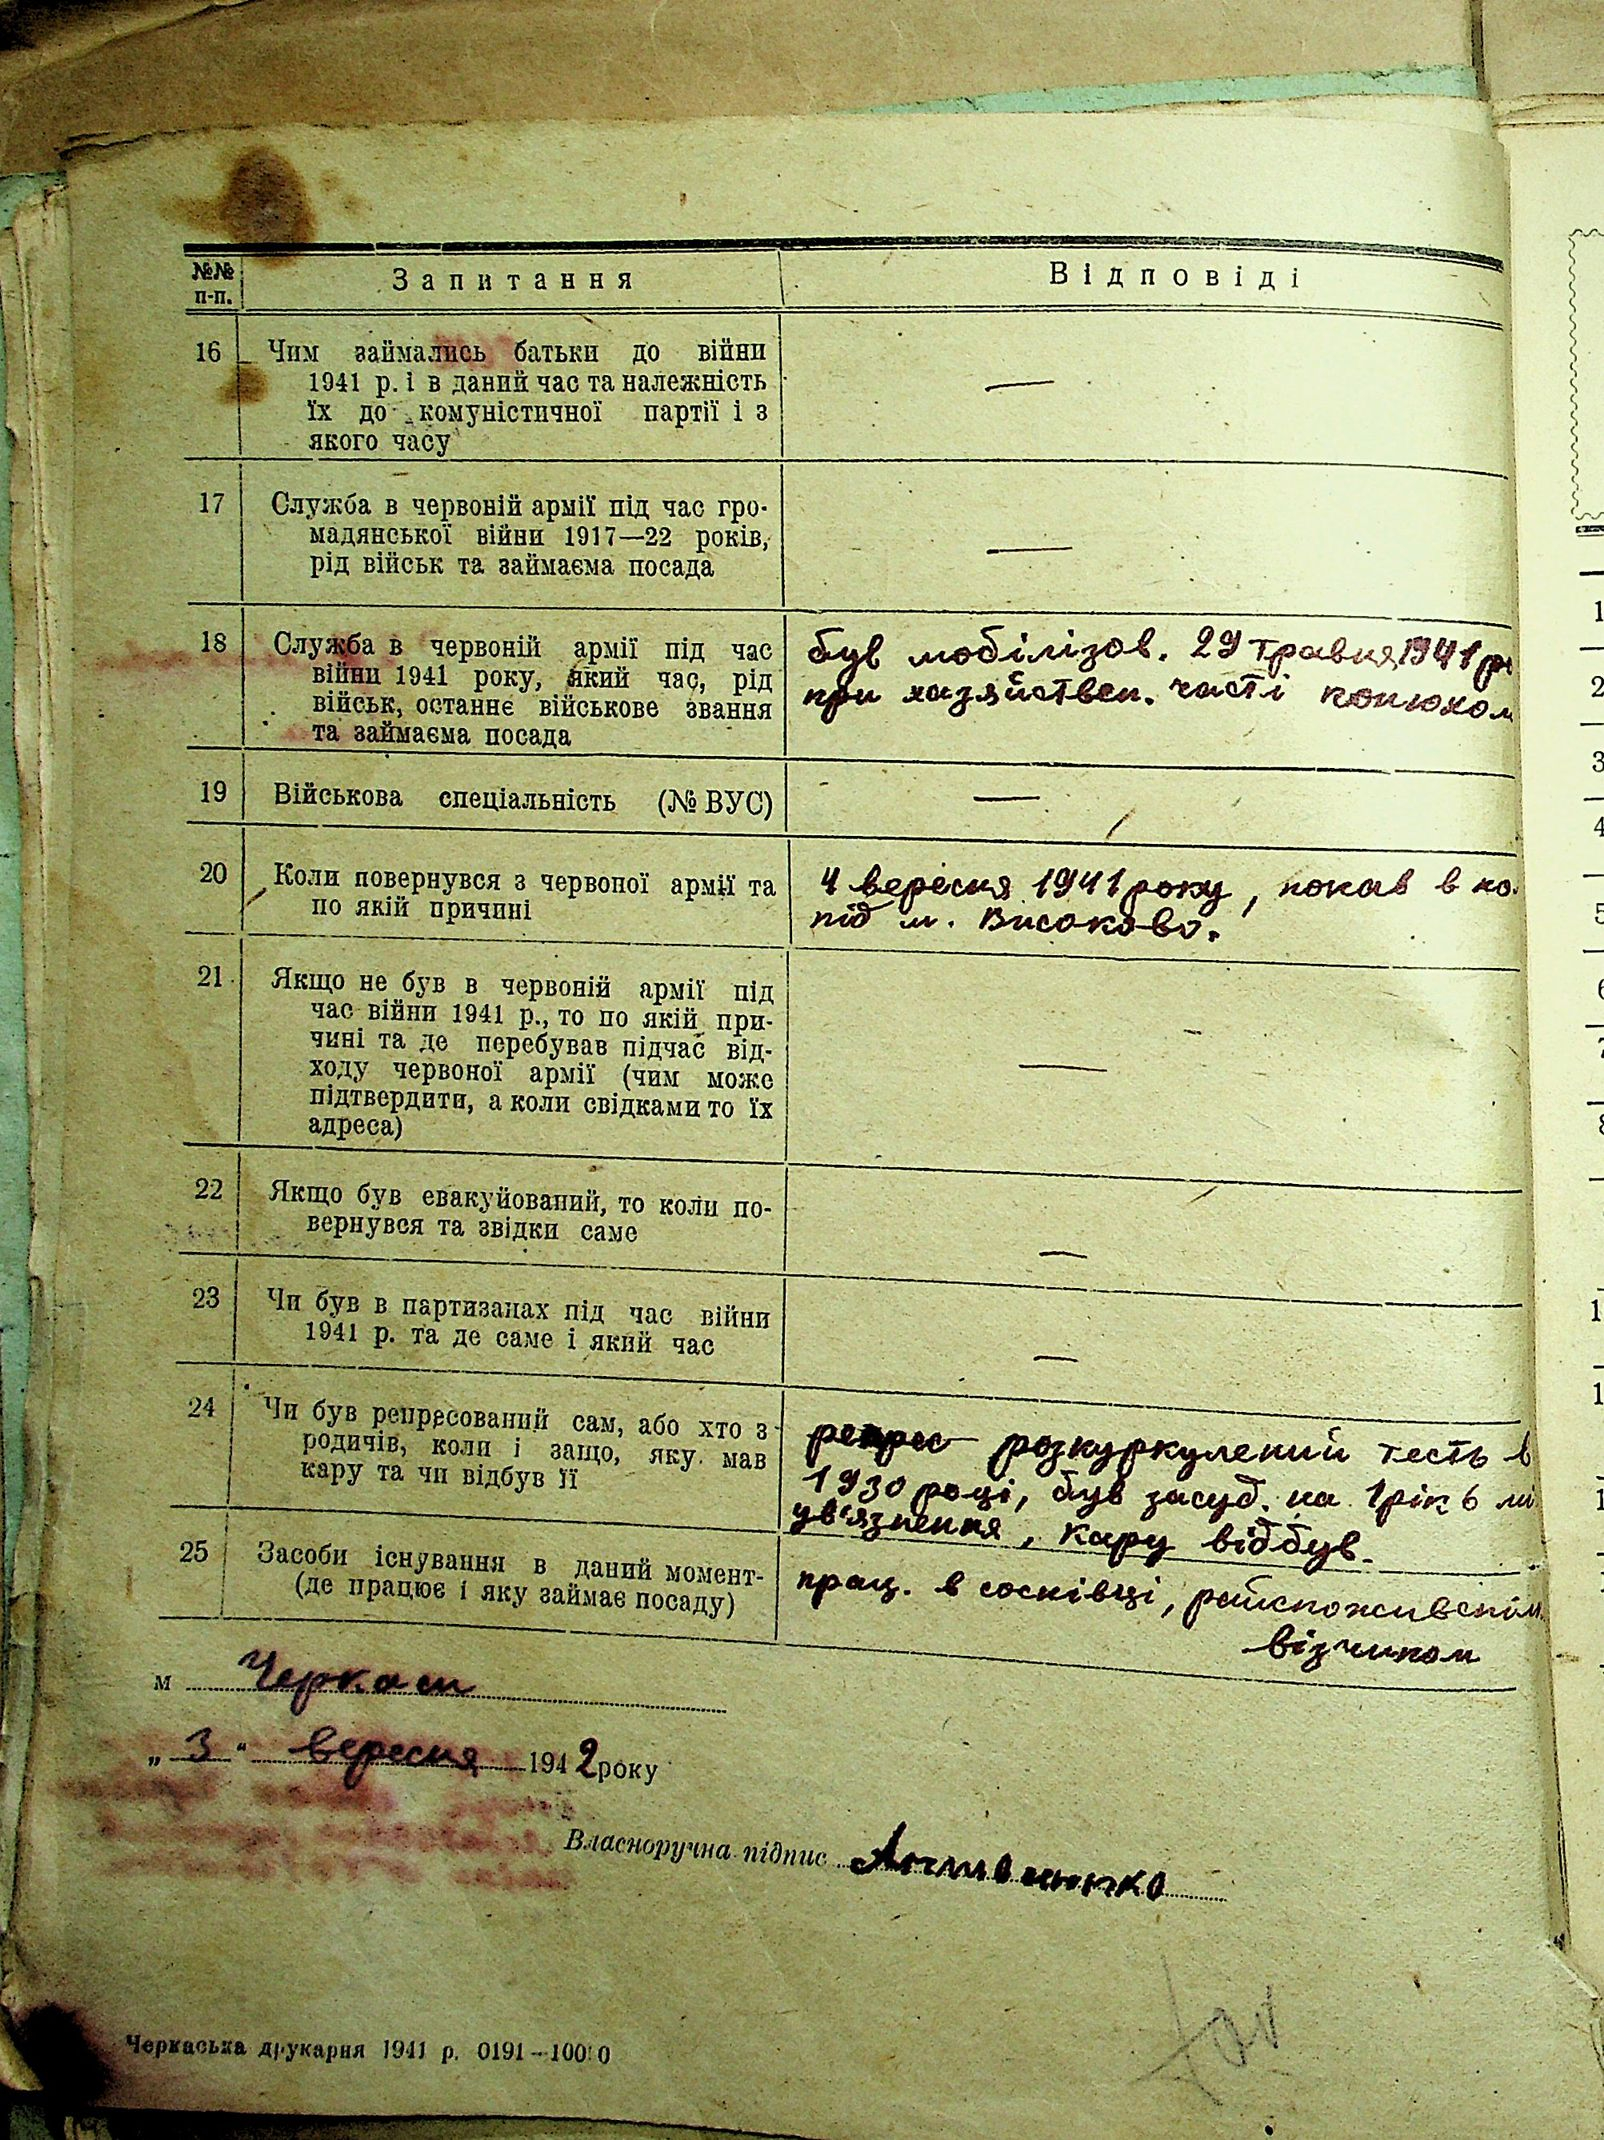 №№ п-п.
Запитання
Відповіді
16
Чим займались батьки до війни
1941 р. і в даний час та належність
їх до комуністичної партії і з
якого часу
—
17
Служба в червоній армії під час гро-
мадянської війни 1917—22 років,
рід військ та займаєма посада
—
18
Служба в червоній армії під час
війни 1941 року, який час, рід
військ, останнє військове звання
та займаєма посада
був мобілізов. 29 травня 1941 ро
при хазяйствен. часті конюхом
19
Військова спеціальність (№ ВУС)
—
20
Коли повернувся з червоної армії та
по якій причині
4 вересня 1941 року, попав в по
під м. Високово.
21
Якщо не був в червоній армії під
час війни 1941 р., то по якій при-
чині та де перебував підчас від-
ходу червоної армії (чим може
підтвердити, а коли свідками то їх
адреса)
—
22
Якщо був евакуйований, то коли по-
вернувся та звідки саме
—
23
Чи був в партизанах під час війни
1941 р. та де саме і який час
—
24
Чи був репресований сам, або хто з
родичів, коли і защо, яку мав
кару та чи відбув її
репрес розкуркулений тесть в
1930 році, був засуд. на 1 рік 6 мі
ув'язнення, кару відбув.
25
Засоби існування в даний момент-
(де працює і яку займає посаду)
прац. в соснівці, райспоживспілк.
візчиком
м Черкаси
„ 3 “ вересня 1942 року
Власноручна підпис
Черкаська друкарня 1941 р. 0191—10000